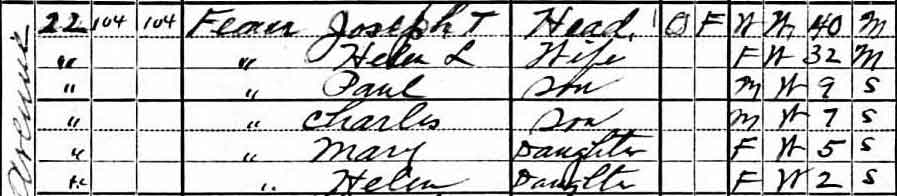 Avenue
22 104 104 Fearn Joseph T Head O F M W 40 M
" " Helen L Wife F W 32 M
" " Paul Son M W 9 S
" " Charles Son M W 7 S
" " Mary Daughter F W 5 S
" " Helen Daughter F W 2 S